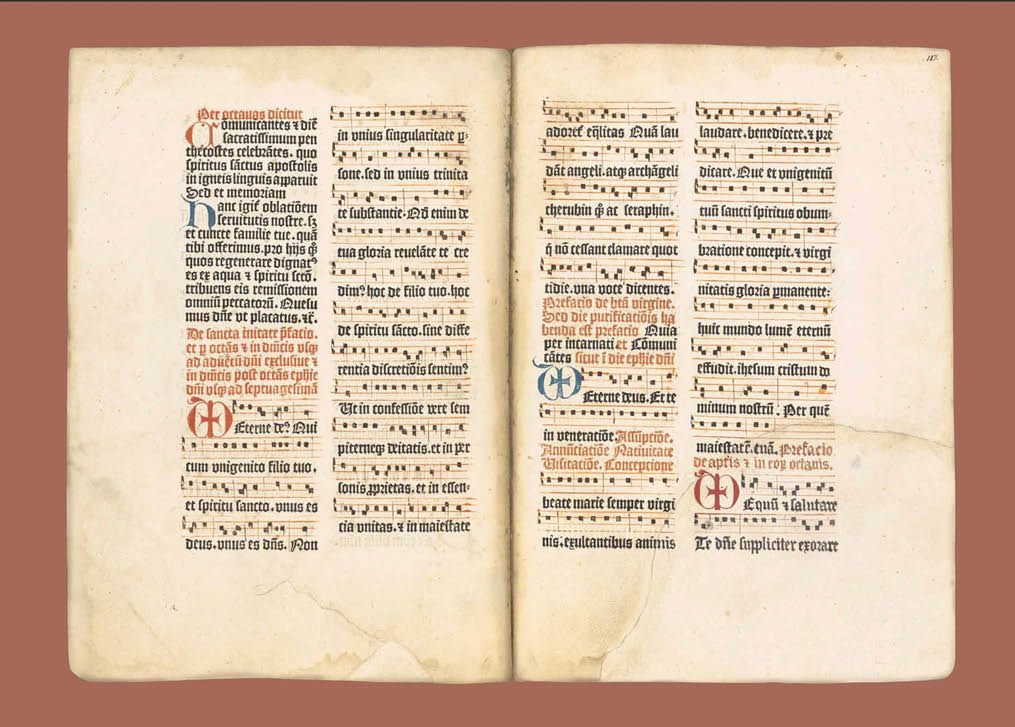 Per octavas dicitur
Comunicantes ⁊ diē
sacratissimum pen
thecostes celebrātes. quo
spiritus sāctus apostolis
in igneis linguis apparuit
Sed et memoriam
Hanc igit̄ oblatiōem
seruitutis nostre. sꝫ
et cuncte familie tue. quā
tibi offerimus. pro hijs q̄
quos regenerare dignatꝰ
es ex aqua ⁊ spiritu scto.
tribuens eis remissionem
omniū peccatorū. Quesu
mus dn̄e vt placatus. ⁊c̄.
De sancta trinitate p̄fatio.
et ꝑ octās ⁊ in dn̄icis vsqꝫ
ad aduētū dn̄i exclusiue ⁊
in dn̄icis post octās ephie
dn̄i vsqꝫ ad septuagesimā
Eterne deꝰ Qui
cum vnigenito filio tuo.
et spiritu sancto. vnus es
deus. vnus es dn̄s. Non
in vnius singularitate ꝑ-
sone. sed in vnius trinita
te substantie. Qd̄ enim de
tua gloria reuelāte te cre
dimꝰ hoc de filio tuo. hoc
de spiritu sācto. sine diffe
rentia discretiōis sentimꝰ
Ut in confessiōe vere sem
piterneqꝫ deitatis. et in per
sonis ꝓprietas. et in essen-
tia vnitas. ⁊ in maiestate
117.
adoret̄ eq̄litas Quā lau
dāt angeli. atqꝫ archāgeli
cherubin q̄ꝫ ac seraphin.
q̄ nō cessant clamare quot
tidie. vna voce dicentes.
Prefacio de btā virgine.
Sed die purificatiōis ha
benda est prefacio Quia
per incarnati et Cōmuni
cātes sicut ī die ephie dn̄i
Eterne deus. Et te
in veneratiōe Assūptiōe.
Annūtiatiōe Natiuitate
Visitatiōe. Conceptione
beate marie semper virgi
nis. exultantibus animis
laudare. benedicere. ⁊ pre
dicare. Que et vnigenitū
tuū sancti spiritus obum-
bratione concepit. ⁊ virgi
nitatis gloria ꝑmanente.
huic mundo lumē eternū
effudit. ihesum cristum do
minum nostrū. Per quē
maiestatē. tuā. Prefacio
de aptis ⁊ in eoꝝ octauis.
Equū ⁊ salutare
Te dn̄e suppliciter exorare